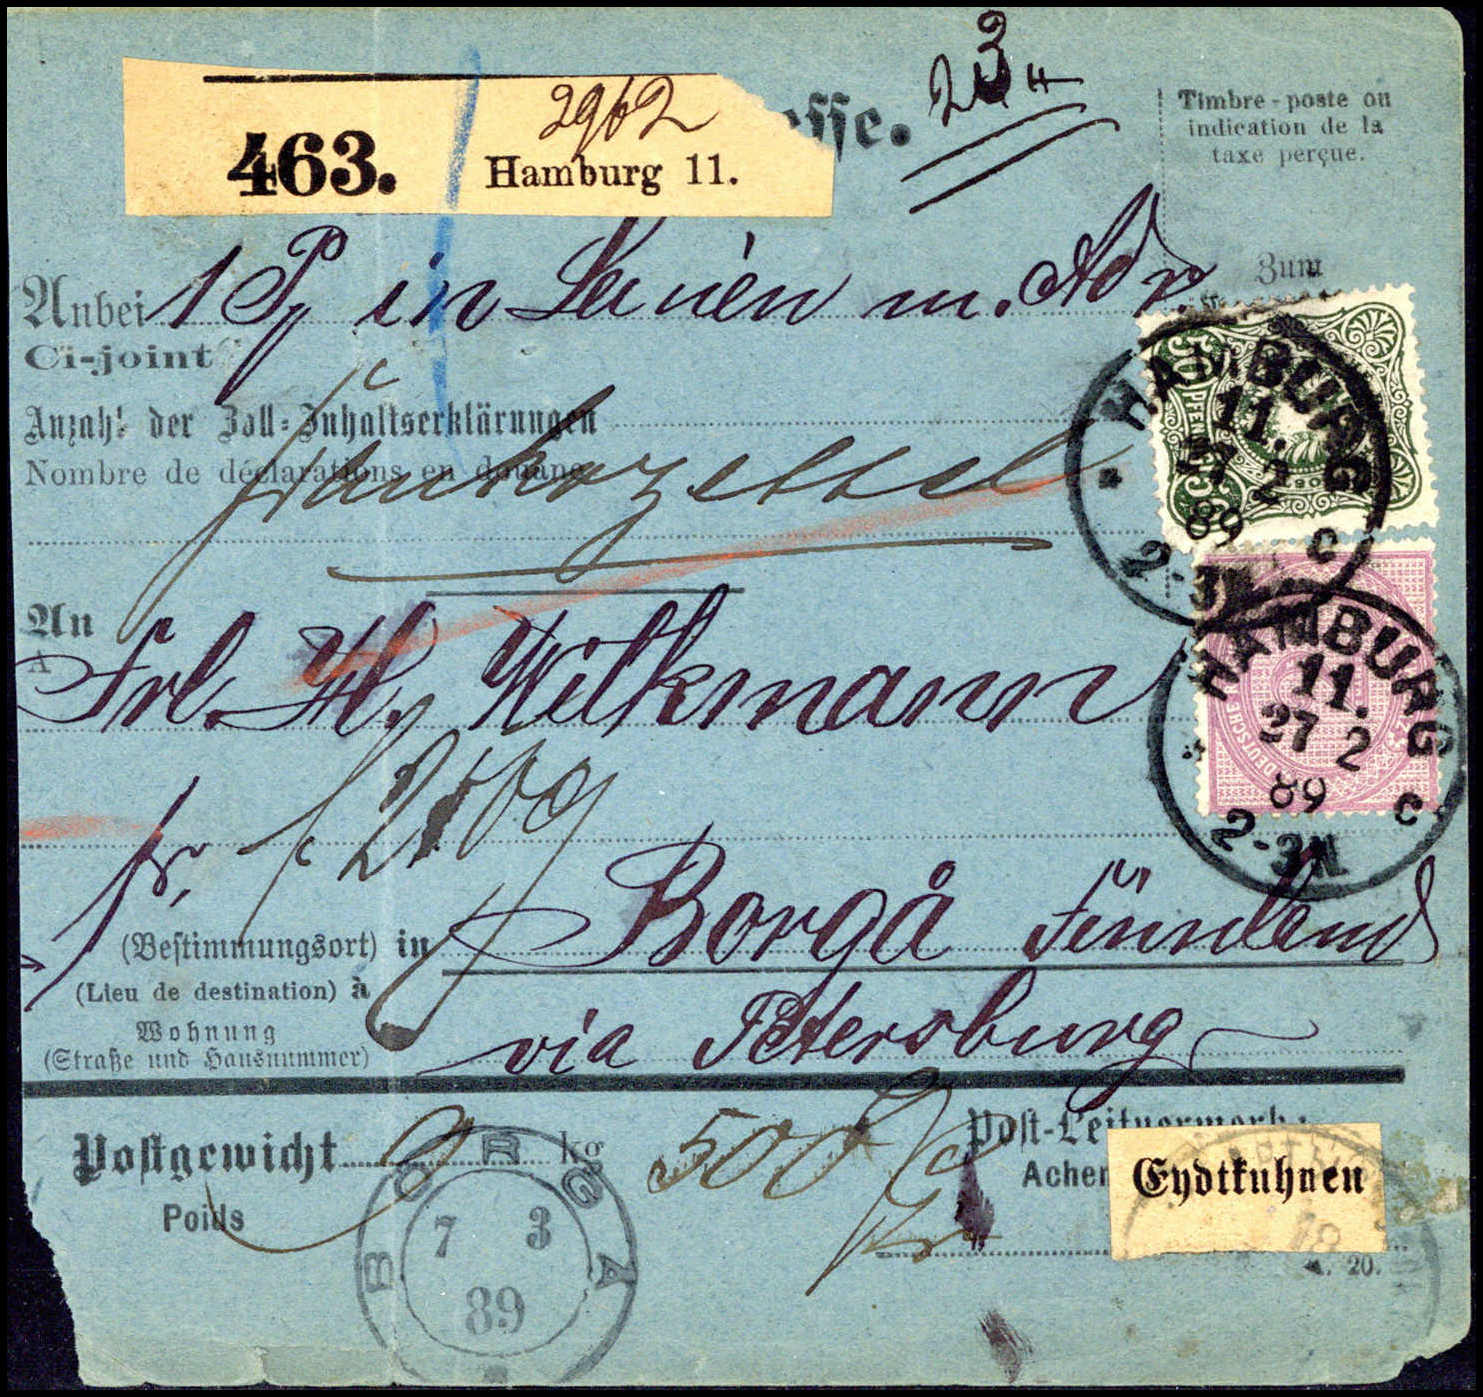 23
2962
463. Hamburg 11.
esse.
Timbre-poste ou
indication de la
taxe perçue.
Zum
Anbei 1 P in Leinen m. Adr.
Ci-joint
Anzahl der Zoll-Inhaltserklärungen
Nombre de déclarations en douane
50 PFENNIG
HAMBURG
11.
27 2
89
2-3N
c
An
A
Frl. H. Wilkmann
DEUTSCHE
HAMBURG
11.
27 2
89
2-3N
c
fr.
(Bestimmungsort) in Borgå Finnland
(Lieu de destination) à
Wohnung
(Straße und Hausnummer) via Petersburg
Postgewicht 9 kg 500
Poids
Post-Leitvermerk:
Achem
Eydtkuhnen
BORGA
7 3
89
20.